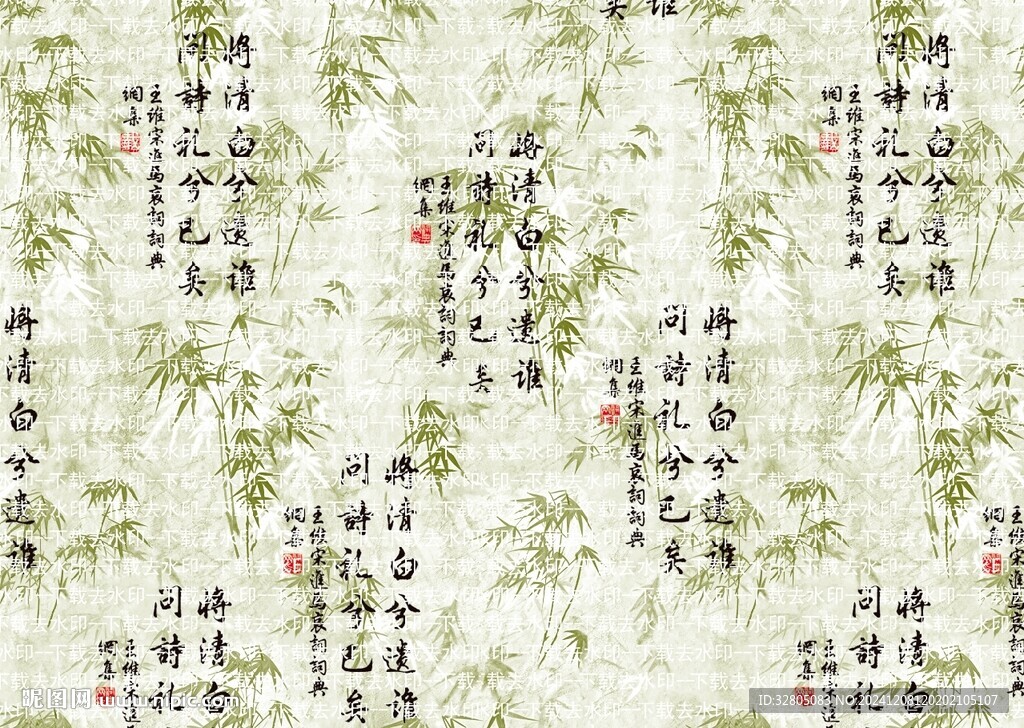 誰
矣
將清白兮遺誰
問詩礼兮已矣
王維宋進馬哀詞詞典
網集
將清白兮遺誰
問詩礼兮已矣
王維宋進馬哀詞詞典
網集
將清白兮遺誰
問詩礼兮已矣
王維宋進馬哀詞詞典
網集
將清白兮遺誰
將清白兮遺誰
問詩礼兮已矣
王維宋進馬哀詞詞典
網集
將清白兮遺誰
問詩礼兮已矣
王維宋進馬哀詞詞典
網集
王維宋進馬哀詞詞典
網集
將清白
問詩礼
王維宋進
網集
將清白
問詩礼
王維宋進
網集
下载去水印
昵图网 www.nipic.com
ID:32805083 NO:20241208120202105107